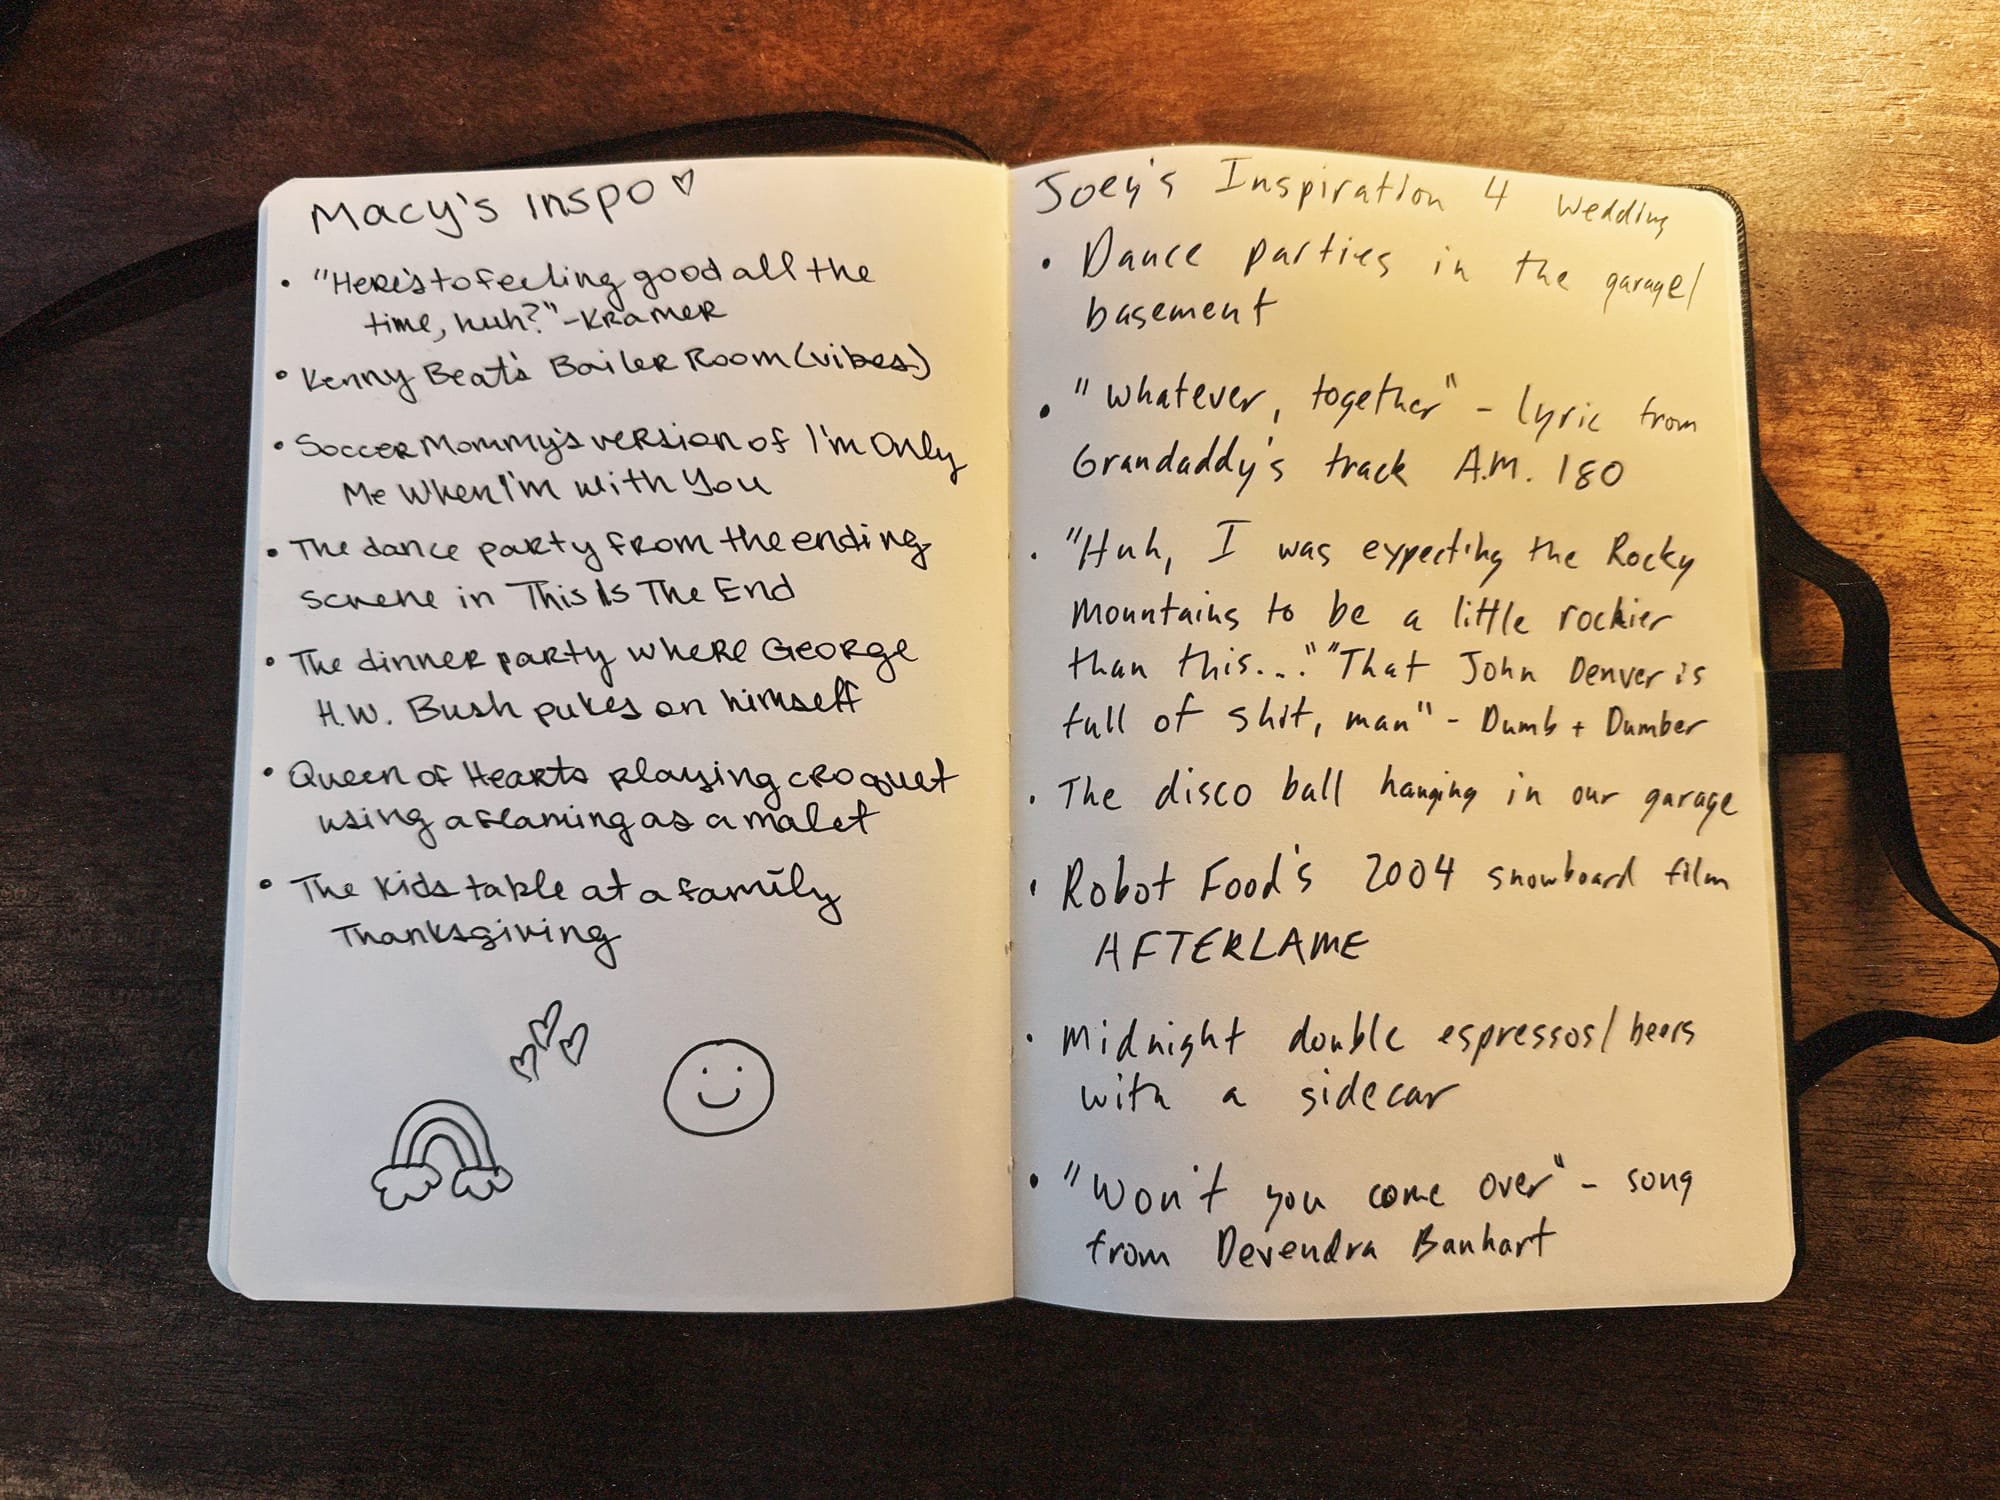 Macy's Inspo ♡
• "Here's to feeling good all the
time, huh?" - Kramer
• Kenny Beat's Boiler Room (vibes)
• Soccer Mommy's version of I'm Only
Me When I'm with You
• The dance party from the ending
scene in This Is The End
• The dinner party where George
H.W. Bush pukes on himself
• Queen of Hearts playing croquet
using a flaming as a malet
• The kids table at a family
Thanksgiving
Joey's Inspiration 4 Wedding
• Dance parties in the garage/
basement
• "Whatever, together" - lyric from
Grandaddy's track A.M. 180
• "Huh, I was expecting the Rocky
Mountains to be a little rockier
than this..." "That John Denver is
full of shit, man" - Dumb + Dumber
• The disco ball hanging in our garage
• Robot Food's 2004 snowboard film
AFTERLAME
• Midnight double espressos/beers
with a sidecar
• "Won't you come over" - song
from Devendra Banhart